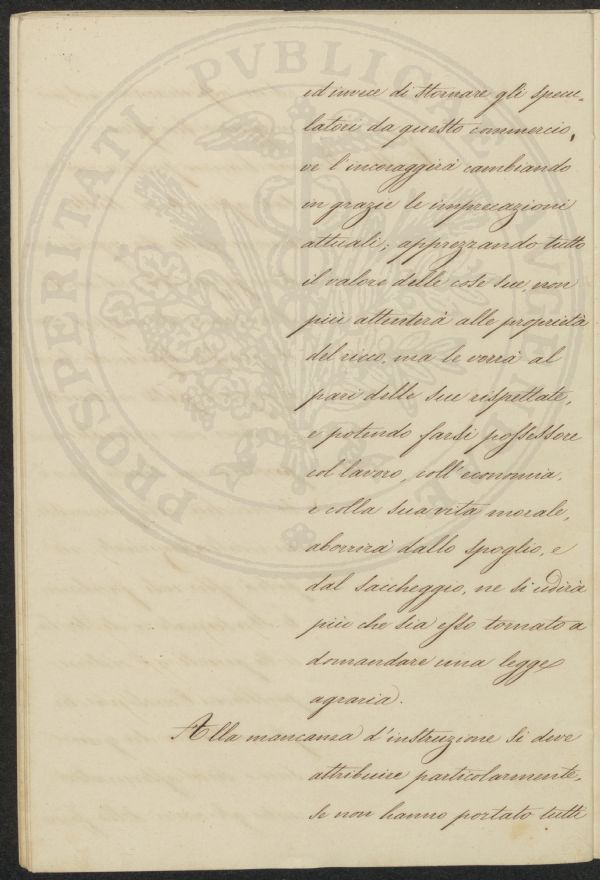 PROSPERITATI PVBLICAE
ed invece di stornare gli specu-
latori da questo commercio,
ve l'incoraggirà cambiando
in grazie le imprecazioni
attuali; apprezzando tutto
il valore delle cose sue, non
più attenterà alle proprietà
del ricco, ma le vorrà al
pari delle sue rispettate,
e potendo farsi possessore
col lavoro, coll'economia,
e colla sua vita morale,
aborrirà dallo spoglio, e
dal saccheggio, ne si udirà
più che sia esso tornato a
domandare una legge
agraria.
Alla mancanza d'instruzione si deve
attribuire particolarmente,
se non hanno portato tutti